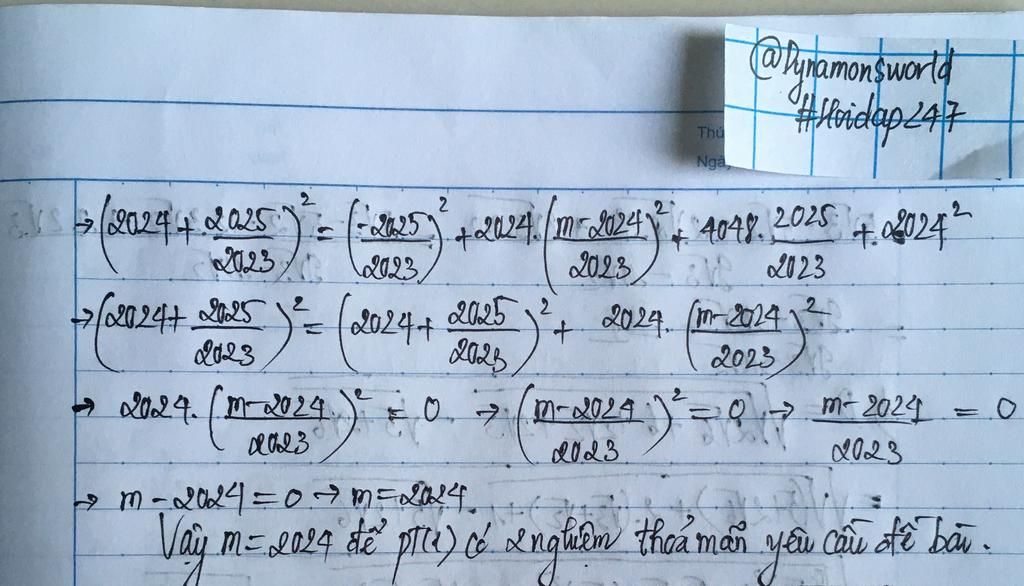 @Dynamonsworld
#Hoidap247
Thứ
Ngà
→ (2024 + 2025/2023)² = (-2025/2023)² + 2024. (m-2024/2023)² + 4048. 2025/2023 + 2024²
→ (2024 + 2025/2023)² = (2024 + 2025/2023)² + 2024. (m-2024/2023)²
→ 2024. (m-2024/2023)² = 0 → (m-2024/2023)² = 0 → m-2024/2023 = 0
→ m - 2024 = 0 → m = 2024.
Vậy m = 2024 để pt(1) có 2 nghiệm thoả mãn yêu cầu đề bài.